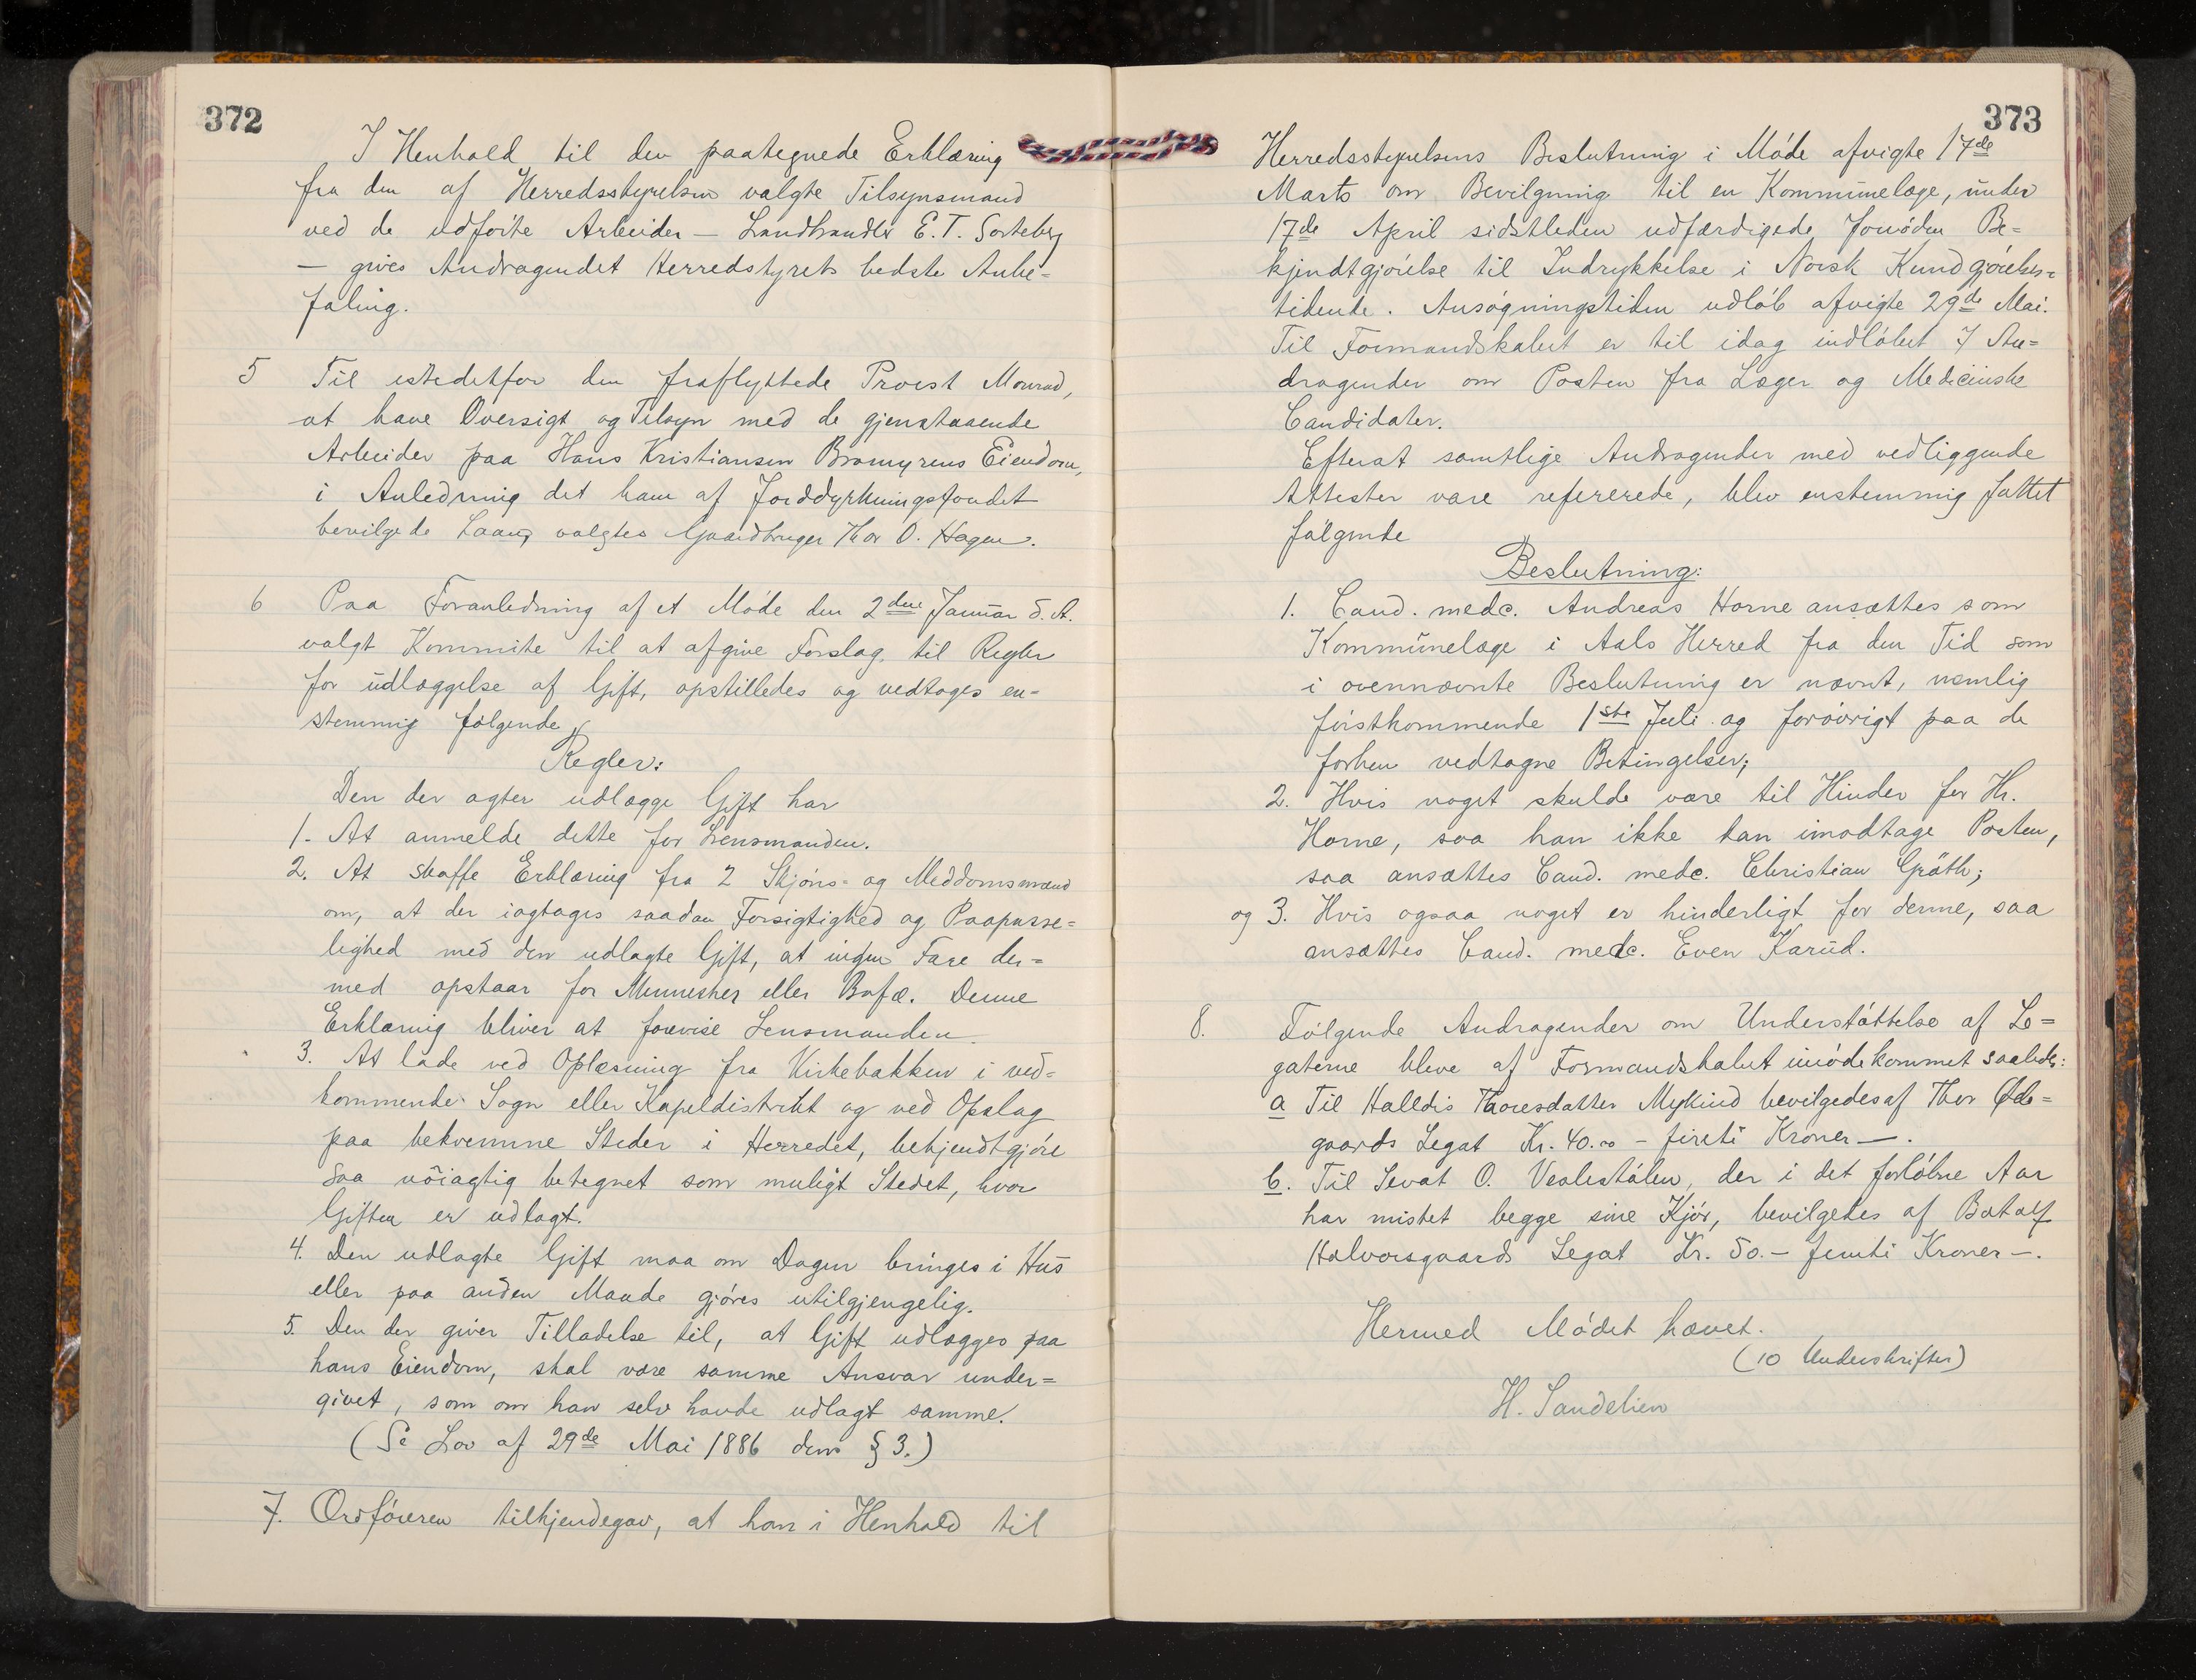 372
I Henhold til den paategnede Erklæring
fra den af Herredsstyrelsen valgte Tilsynsmand
ved de udførte Arbeider — Landhandler E.T. Sorteberg
— gives Andragendet Herredstyrets bedste Anbe=
faling.
5 Til istedetfor den fraflyttede Provst Monrad,
at have Oversigt og Tilsyn med de gjenstaaende
Arbeider paa Hans Kristiansen Bramyrens Eiendom,
i Anledning det ham af Jorddyrkningsfondet
bevilgede Laan, valgtes Gaardbruger Thor O. Hagen.
6 Paa Foranledning af et Møde den 2den Januar d. A.
valgt Kommite til at afgive Forslag til Regler
for udlæggelse af Gift, opstilledes og vedtoges en=
stemmig følgende
Regler:
Den der agter udlægge Gift har
1. At anmelde dette for Lensmanden.
2. At skaffe Erklæring fra 2 Skjøns- og Meddomsmænd
om, at der iagtages saadan Forsigtighed og Paapasse=
lighed med den udlagte Gift, at ingen Fare der=
med opstaar for Mennesker eller Bufæ. Denne
Erklæring bliver at forevise Lensmanden.
3. At lade ved Oplæsning fra Kirkebakken i ved=
kommende Sogn eller Kapeldistrikt og ved Opslag
paa bekvemme Steder i Herredet, bekjendtgjøre
saa nöiagtig betegnet som muligt Stedet, hvor
Giften er udlagt.
4. Den udlagte Gift maa om Dagen bringes i Hus
eller paa anden Maade gjøres utilgjengelig.
5. Den der giver Tilladelse til, at Gift udlægges paa
hans Eiendom, skal være samme Ansvar under=
givet, som om han selv havde udlagt samme.
(Se Lov af 29de Mai 1886 dens § 3.)
7. Ordføreren tilkjendegav, at han i Henhold til
373
Herredsstyrelsens Beslutning i Møde afvigte 17de
Marts om Bevilgning til en Kommunelæge, under
17de April sidstleden udfærdigede fornøden Be=
kjendtgjørelse til Indrykkelse i Norsk Kundgjørelses=
tidende. Ansøgningstiden udløb afvigte 29de Mai.
Til Formandskabet er til idag indløbet 7 An=
dragender om Posten fra Læger og Medicinske
Candidater.
Efterat samtlige Andragender med vedliggende
Attester vare refererede, blev enstemmig fattet
følgende
Beslutning:
1. Cand. medc. Andreas Horne ansættes som
Kommunelæge i Aals Herred fra den Tid som
i ovennævnte Beslutning er nævnt, nemlig
førstkommende 1ste Juli og forøvrigt paa de
forhen vedtagne Betingelser;
2. Hvis noget skulde være til Hinder for Hr.
Horne, saa han ikke kan imodtage Posten,
saa ansættes Cand. medc. Christian Gräth;
og 3. Hvis ogsaa noget er hinderligt for denne, saa
ansættes Cand. medc. Even Karud.
8. Følgende Andragender om Understøttelse af Le=
gaterne bleve af Formandskabet imødekommet saaledes:
a Til Halldis Thoresdatter Myking bevilgedes af Thor Øde=
gaards Legat Kr. 40.00 – fireti Kroner —.
b. Til Sevat O. Veslestølen, der i det forløbne Aar
har mistet begge sine Kjør, bevilgedes af Botolf
Halvorsgaards Legat Kr. 50.– femti Kroner —.
Hermed Mødet hævet.
(10 Underskrifter)
H. Sandelien